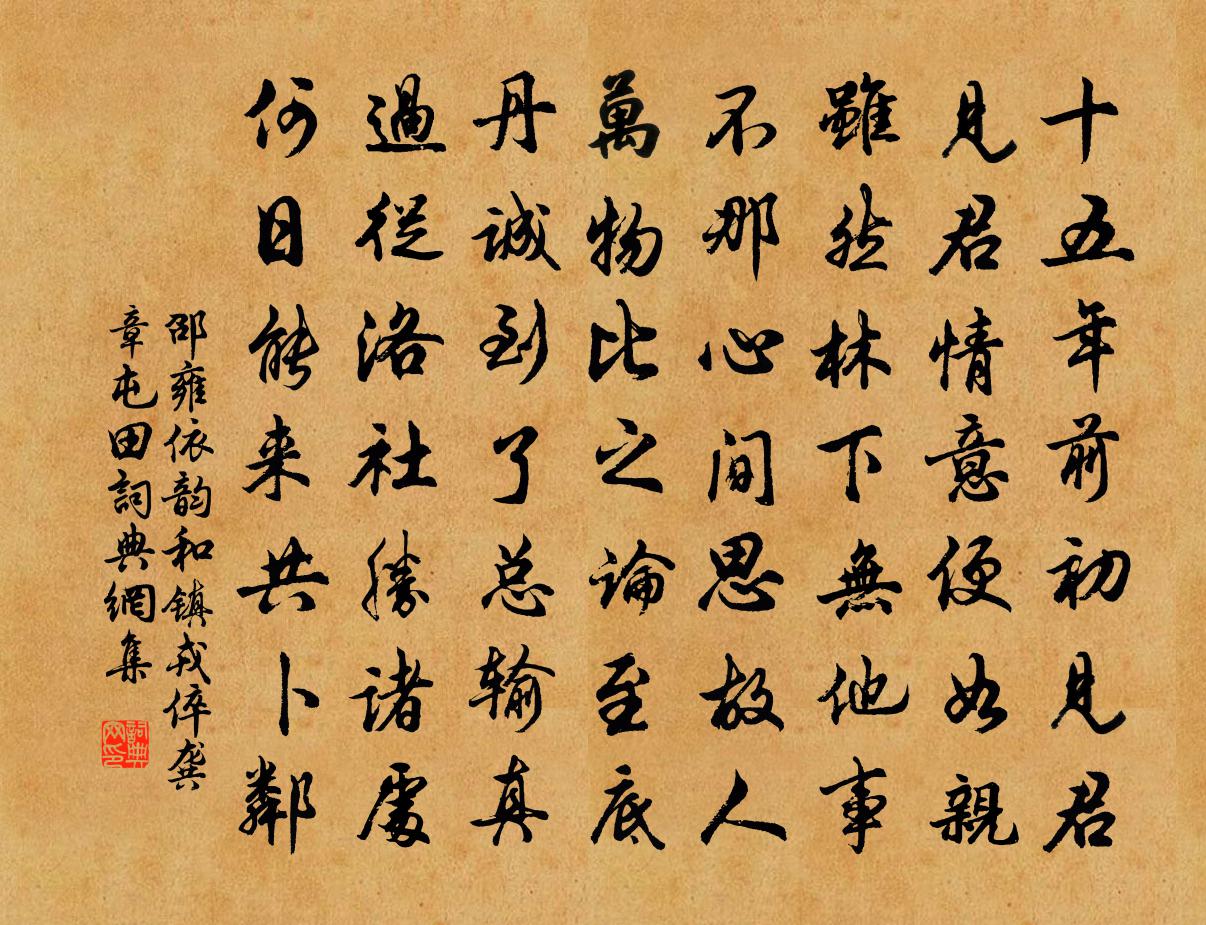 十五年前初見君
見君情意便如親
雖然林下無他事
不那心间思故人
萬物比之論至底
丹誠到了总输真
過從洛社勝諸處
何日能来共卜鄰
邵雍依韵和镇戎倅龚
章屯田詞典網集
詞典
网印